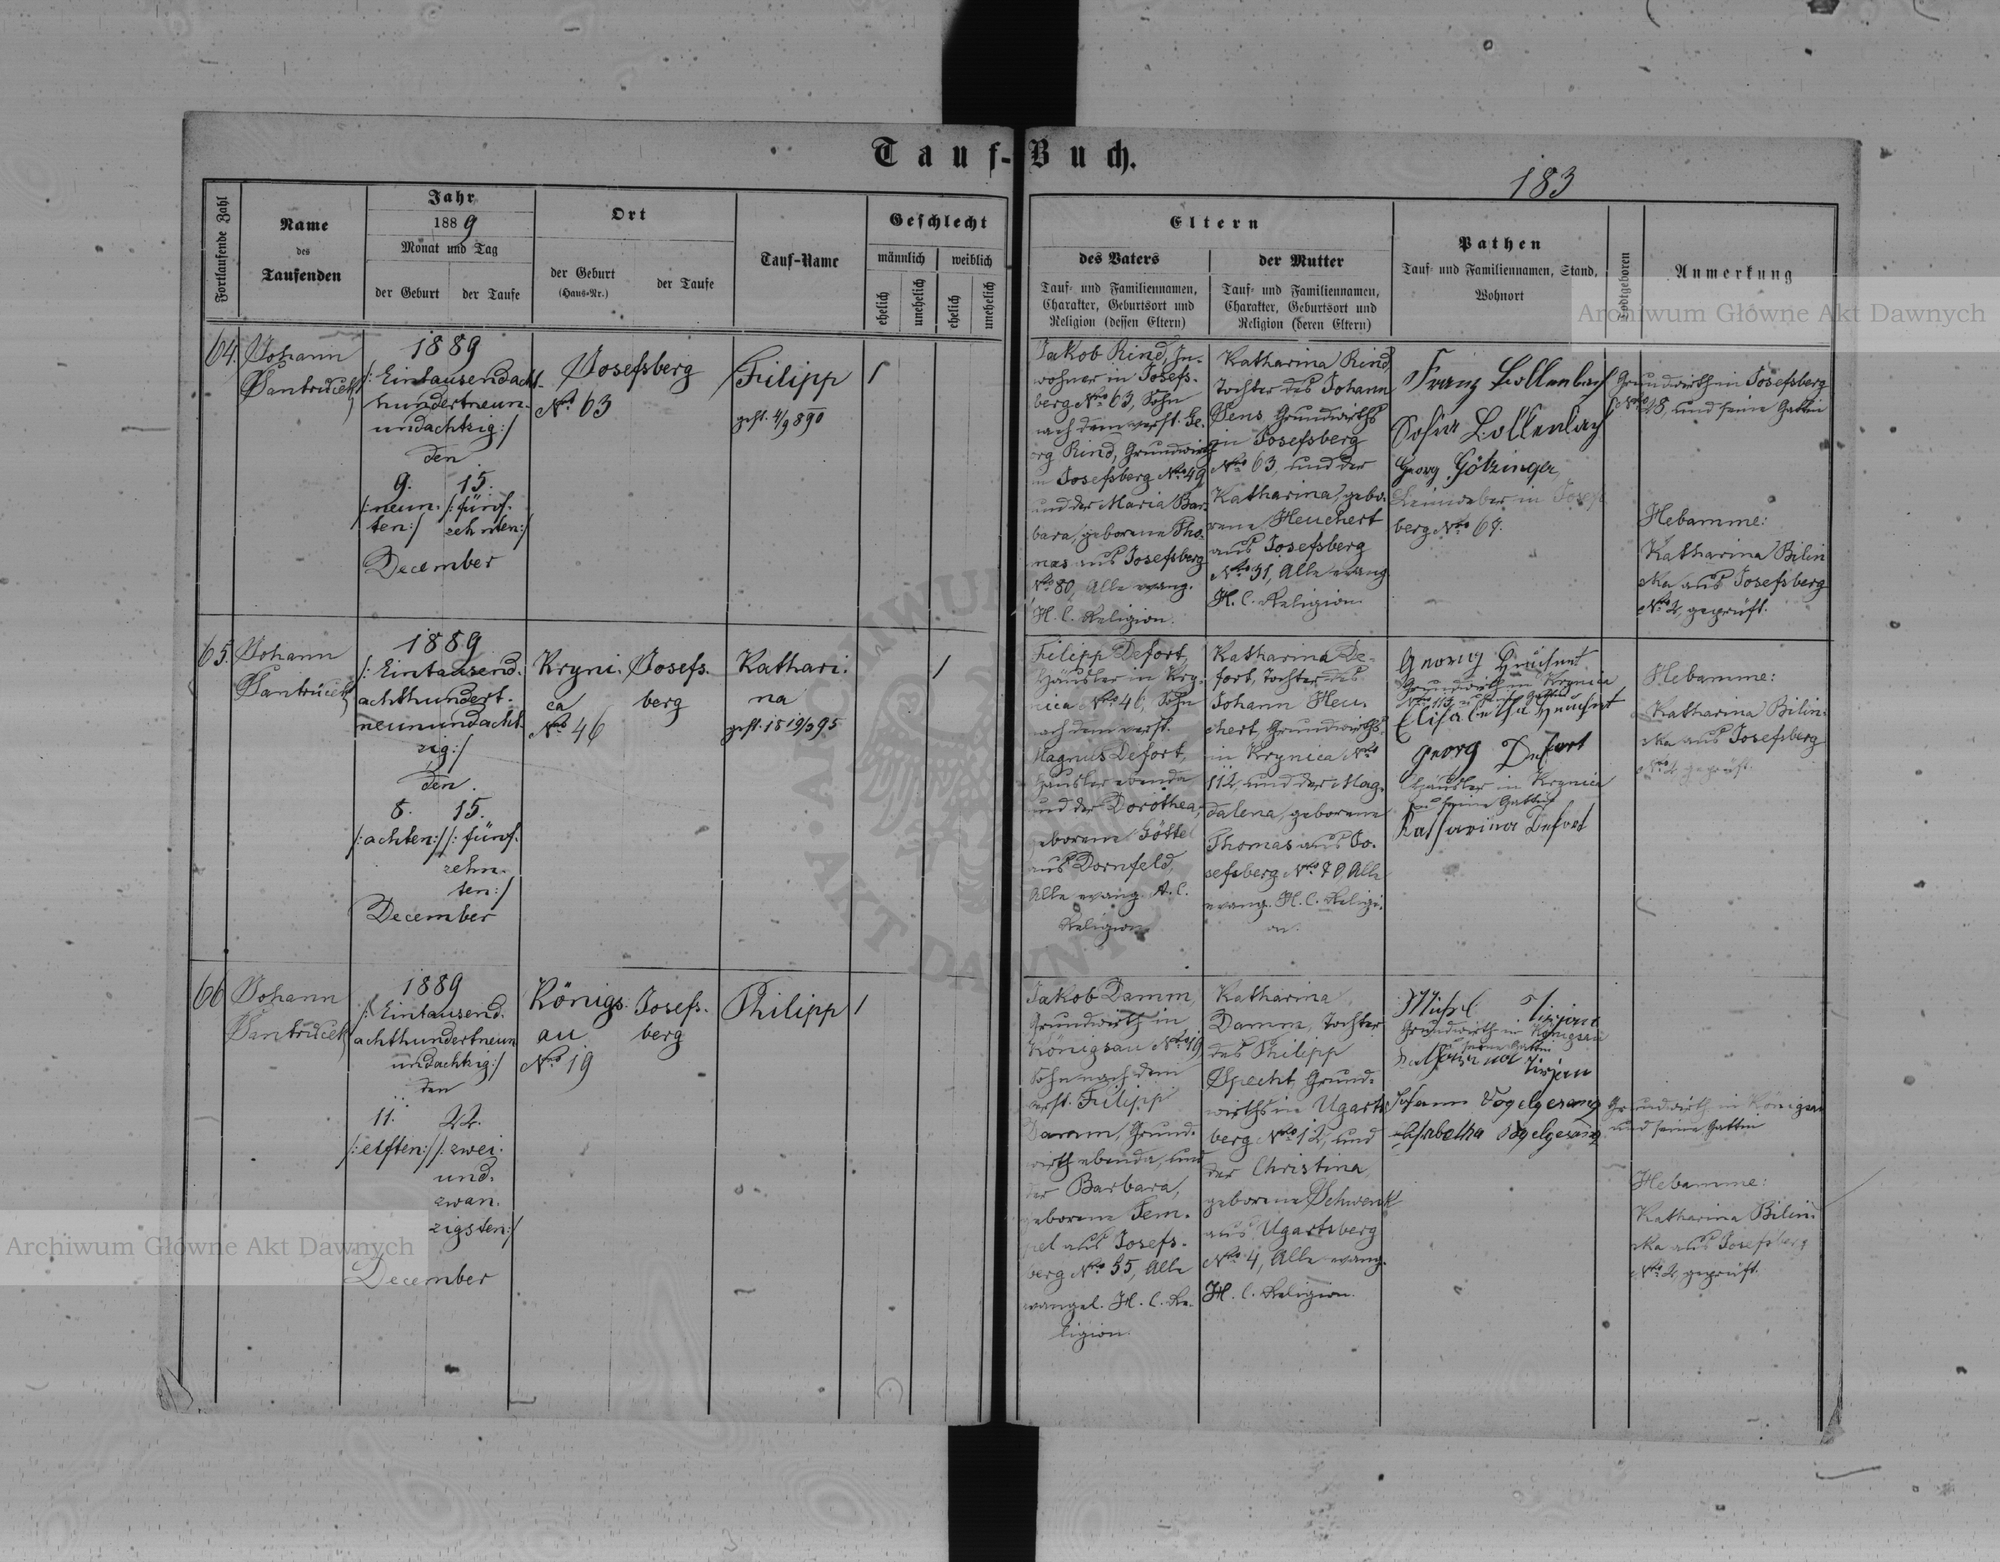 Tauf-Buch.
183
Fortlaufende Zahl
Name
des
Taufenden
Jahr
1889
Monat und Tag
der Geburt
der Taufe
Ort
der Geburt
(Haus-Nr.)
der Taufe
Tauf-Name
Geschlecht
männlich
weiblich
ehelich
unehelich
ehelich
unehelich
Eltern
des Vaters
Tauf- und Familiennamen,
Charakter, Geburtsort und
Religion (dessen Eltern)
der Mutter
Tauf- und Familiennamen,
Charakter, Geburtsort und
Religion (deren Eltern)
Pathen
Tauf- und Familiennamen, Stand,
Wohnort
Todtgeboren
Anmerkung
Archiwum Główne Akt Dawnych
64.
Johann
Jantrucek
1889
/: Eintausendacht-
hundertneun-
undachtzig :/
den
9. 15.
/: neun- /: fünf-
ten :/ zehnten :/
December
Josefsberg
Nro 63
Filipp
gest. 4/9 890
1
Jakob Rind, In-
wohner in Josefs-
berg Nro 63, Sohn
nach dem verst. Ge-
org Rind, Grundwirth
in Josefsberg Nro 49
und der Maria Bar-
bara, geborene Tho-
mas aus Josefsberg
Nro 80, Alle evang.
H. C. Religion.
Katharina Rind,
Tochter des Johann
Sens, Grundwirths
in Josefsberg
Nro 63, und der
Katharina, gebo-
rene Heuchert
aus Josefsberg
Nro 31, Alle evang.
H. C. Religion.
Franz Bollenbach
Sofia Bollenbach
Georg Götzinger,
Leinweber in Josefs
berg Nro 67.
Grundwirth in Josefsberg
Nro 48, und seine Gattin
Hebamme:
Katharina Bilin
ska aus Josefsberg
Nro 2, geprüft.
65.
Johann
Jantrucek
1889
/: Eintausend-
achthundert-
neunundacht-
zig :/
den
8. 15.
/: achten :/ /: fünf-
zehn-
ten :/
December
Kryni-
ca
Nro 46
Josefs-
berg
Kathari-
na
gest. 15 19/3 95
1
Filipp Defort,
Häusler in Kry-
nica Nro 46, Sohn
nach dem verst.
Magnus Defort,
Häusler ebenda
und der Dorothea,
geborene Göttel
aus Dornfeld,
Alle evang. A. C.
Religion
Katharina De-
fort, Tochter des
Johann Heu-
chert, Grundwirths
in Krynica Nro
112, und der Mag-
dalena, geborene
Thomas aus Jo-
sefsberg Nro 70, Alle
evang. H. C. Religi-
on.
Georg Heuchert
Grundwirth in Krynica
Nro 113, u. seine Gattin
Elisabetha Heuchert
Georg Defort
Häusler in Krynica
u. seine Gattin
Katharina Defort
Hebamme:
Katharina Bilin-
ska aus Josefsberg
Nro 2, geprüft.
66
Johann
Jantrucek
1889
/: Eintausend-
achthundertneun
undachtzig :/
den
11. 22.
/: elften :/ /: zwei-
und-
zwan-
zigsten :/
December
Königs-
au
Nro 19
Josefs-
berg
Philipp
1
Jakob Damm,
Grundwirth in
Königsau Nro 19
Sohn nach dem
verst. Filipp
Damm, Grund-
wirth ebenda, und
der Barbara,
geborene Tem-
pel aus Josefs-
berg Nro 55, Alle
evangel. H. C. Re-
ligion.
Katharina
Damm, Tochter
des Philipp
Specht, Grund-
wirths in Ugarts
berg Nro 12, und
der Christina,
geborene Schwenk
aus Ugartsberg
Nro 4, Alle evang.
H. C. Religion.
Michel
Grundwirth in Königsau
u. seine Gattin
Katharina
Johann Vogelgesang
Elisabetha Vogelgesang
Grundwirth in Königsau
und seine Gattin
Hebamme:
Katharina Bilin-
ska aus Josefsberg
Nro 2, geprüft.
Archiwum Główne Akt Dawnych